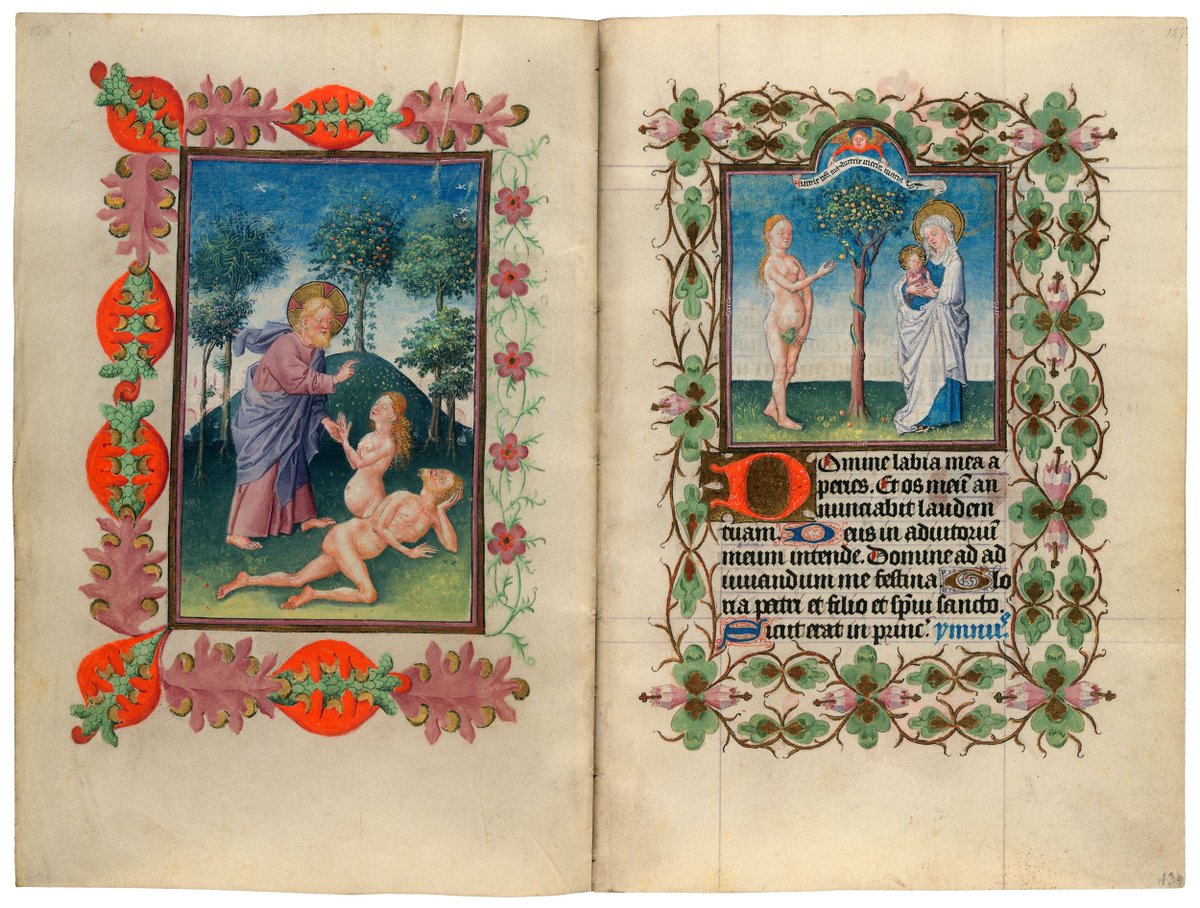 maria
Domine labia mea a
peries. Et os meū an
nunciabit laudem
tuam Deus in adiutoriū
meum intende. Domine ad ad
iuuandum me festina Glo
ria patri et filio et sp̄ui sancto.
Sicut erat in princ' ymnus.
139